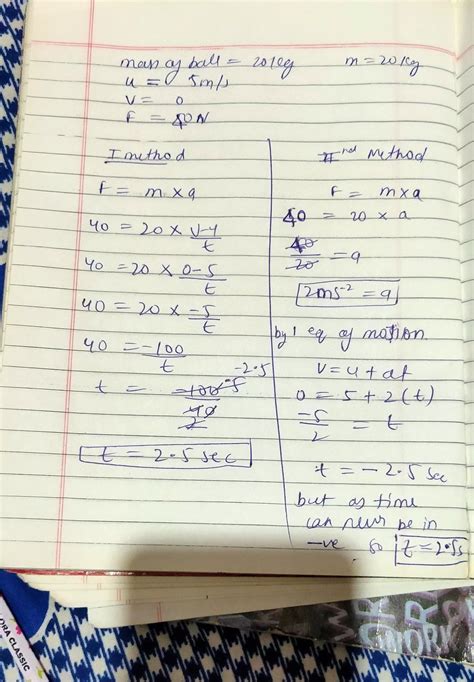 mass of ball = 20 kg m = 20 kg
u = 5 m/s
v = 0
F = 40 N
I method
F = m × a
40 = 20 × v-u/t
40 = 20 × 0-5/t
40 = 20 × -5/t
40 = -100/t
-2.5
t = -100 -5
40
2
t = 2.5 sec
IInd Method
F = m×a
40 = 20 × a
40/20 = a
2ms⁻² = a
by 1 eq of motion.
v = u + at
0 = 5 + 2(t)
-5/2 = t
t = -2.5 sec
but as time
can never be in
-ve so t = 2.5s
DRA CLASSIC
WORK